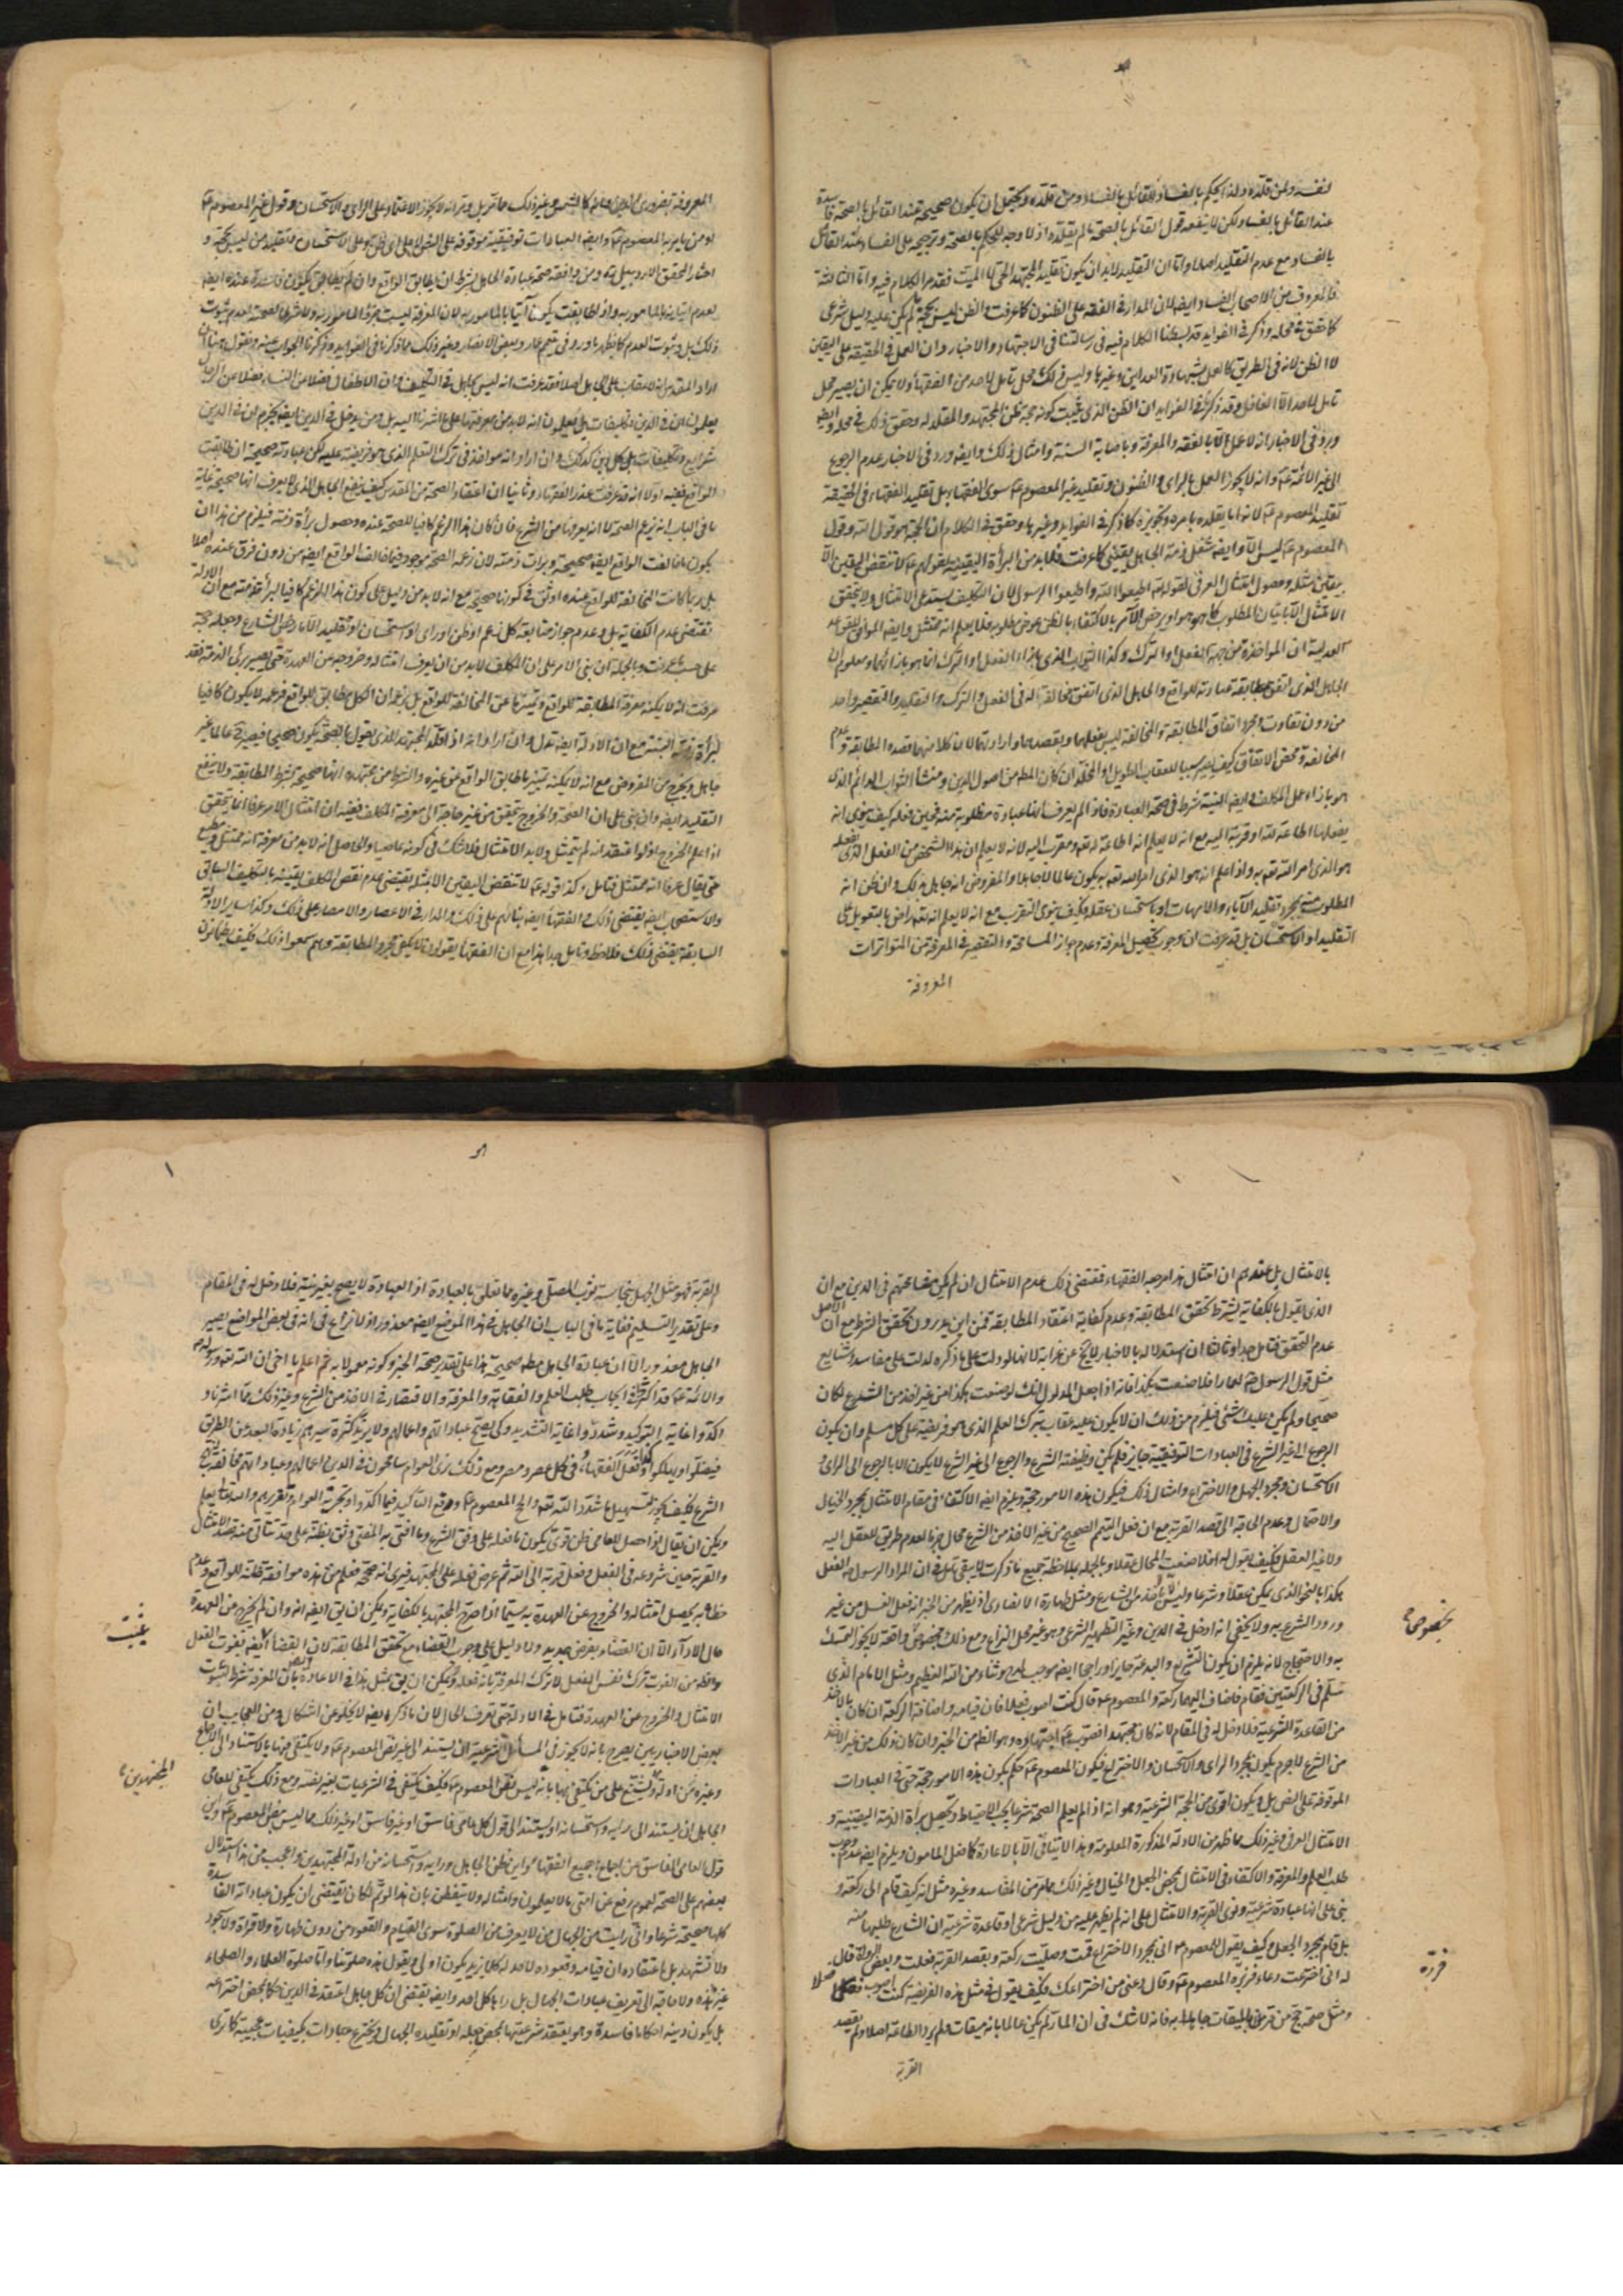 لنفسه ولمن قلّده ولذا يحكم بالفساد القائل بالفساد ومن قلّده ويحتمل ان يكون صحيحة عند القائل بالصحة فاسدة
عند القائل بالفساد ولكن لا ينفعه قول القائل بالصحة ما لم يقلّده اذ لا وجه للحكم بالصحة وترجيحه على الفساد عند القائل
بالفساد مع عدم التقليد اصلا واما ان التقليد لا بد ان يكون تقليد المجتهد الحي لا الميت فقد مر الكلام فيه واما الثالثة
فالمعروف من الاصحاب الفساد ايضا لان المدار في الفقه على الظنون كما عرفت والظن ليس بحجة ما لم يكن عليه دليل شرعي
كما حقق في محله وذكر في الفوايد قد بسطنا الكلام فيه في رسالتنا في الاجتهاد والاخبار وان العمل في الحقيقة على اليقين
لا الظن لانه في الطريق كالعمل بشهادة العدلين وغيرها وليس في ذلك محل تامل لاحد من الفقهاء ولا يمكن ان يصير محل
تامل لاحد الا الغافل وقد ذكرنا في الفوايد ان الظن الذي يثبت كونه حجة ظن المجتهد والمقلد له وحقق ذلك في محله وايضا
ورد في الاخبار انه لا عمل الا بالفقه والمعرفة وباصابة السنة وامثال ذلك وايضا ورد في الاخبار عدم الرجوع
الى غير الائمة ع وانه لا يجوز العمل بالراى والظنون وتقليد غير المعصوم ع سوى الفقهاء بل تقليد الفقهاء في الحقيقة
تقليد المعصوم ع لانه انما يقلده بامره وتجويزه كما ذكر في الفوايد وغيرها وحقق في الكلام ان الحجة هو قول الله وقول
المعصوم ع ليس الا وايضا شغل ذمة الجاهل يقيني كما عرفت فلا بد من البرأة اليقينية لقولهم ع لا تنقض اليقين الا
بيقين مثله وحصول امتثال العرفي لقوله تعالى اطيعوا الله واطيعوا الرسول لان التكليف يستدعي الامتثال ولا يتحقق
الامتثال الا باتيان المطلوب كما هو هو او يرضى الآمر بالاكتفاء بالظن عوض مطلوبه فما لم يعلم انه ممتثل وايضا الموافق لقواعد
العدلية ان المؤاخذة من جهة الفعل او الترك وكذا الثواب الذي بازاء الفعل او الترك انما هو بازائهما ومعلوم ان
الجاهل الذي اتفق مطابقة عبادته للواقع والجاهل الذي اتفق مخالفته له في الفعل والترك والتقليد والتقصير واحد
من دون تفاوت ومجرد اتفاق المطابقة والمخالفة ليس بفعلهما وبقصدهما وارادتهما لان كلا منهما قصد المطابقة وعدم
المخالفة ومحض الاتفاق كيف يصير سببا للعقاب الطويل او المخلد ان كان المطلوب من اصول الدين ومنشأ الثواب الدائم الذي
هو بازاء عمل المكلف وايضا النية شرط في صحة العبادة فاذا لم يعرف انها عبادة مطلوبة منه فحين فعله كيف ينوي انه
يفعلها اطاعة لله او قربة اليه مع انه لا يعلم انه اطاعة له تعالى ومقرب اليه لانه لا يعلم ان هذا الشخص من الفعل الذي يفعله
هو الذي امر الله تعالى به واذا علم انه هو الذي امر الله تعالى به يكون عالما لا جاهلا والمفروض انه جاهل بذلك وان ظن انه
المطلوب منه بمجرد تقليد الآباء والامهات او باستحسان عقله وكيف ينوي التقرب مع انه لا يعلم انه تعالى راض بالتعويل على
التقليد او الاستحسان بل قد عرفت ان وجوب تحصيل المعرفة وعدم جواز المسامحة والتقصير في المعرفة من المتواترات
المعروفة
المعروفة بل ضروري الدين
او من يامر به المعصوم ع وايضا العبادات توقيفية موقوفة على النص
اختار المحقق الاردبيلي ره ومن وافقه صحة عبادة الجاهل بشرط ان يطابق الواقع وان لم يطابق يكون فاسدة عنده ايضا
لعدم اتيانه بالمامور به واذا طابقت يكون آتيا بالمامور به لان المعرفة ليست جزؤ المامور به ولا شرطا لصحته لعدم ثبوت
ذلك بل وثبوت العدم كما يظهر مما ورد في تيمم عمار وبعض الانصار وغير ذلك مما ذكرنا في الفوايد وذكرنا الجواب عنه ونقول هنا ان
اراد المقدس انه لا عقاب على الجاهل اصلا فقد عرفت انه ليس بجاهل في التكليف وان الاطفال فضلا عن النساء فضلا عن الرجال
يعلمون ان في الدين تكليفات بل يعلمون انه لا بد من معرفتها
شرايع وتكليفات بل كل دين كذلك وان اراد انه مؤاخذ في ترك التعلم الذي هو فريضة عليه لكن عباداته صحيحة ان طابقت
الواقع ففيه اولا انه قد عرفت عند الفقهاء وثانيا ان اعتقاد الصحة من المقدس كيف ينفع الجاهل الذي لا يعرف انها صحيحة غاية
ما في الباب انه يزعم الصحة لا انه يعرفها من الشرع فان كان هذا الزعم كافيا للصحة عنده وحصول برأة ذمته فيلزم من هذا ان
يكون ما خالفت الواقع ايضا صحيحة وبرأت ذمته لان زعمه الصحة موجود فيما خالف الواقع ايضا من دون فرق عنده اصلا
بل ربما كانت المخالفة للواقع عنده اوثق في كونها صحيحة مع انه لا بد من دليل على كون هذا الزعم كافيا لبرأة ذمته مع ان الادلة
تقتضي عدم الكفاية بل وعدم جواز متابعة كل زعم او ظن او راى او استحسان او تقليد الا ما رضى الشارع وجعله حجة
على حسب ما عرفت وبالجملة ان بنى الامر على ان المكلف لا بد من ان يعرف امتثاله وخروجه عن العهدة حتى يصير برئ الذمة فقد
عرفت انه لا يمكنه معرفة المطابقة للواقع وتميزها عن المخالفة للواقع بل يزعم ان الكل مطابق للواقع فزعمه لا يكون كافيا
لبرأة ذمته البتة مع ان الادلة ايضا تدل وان اراد انه اذا قلد المجتهد الذي يقول بالصحة يكون صحيحا فيصير ح عالما غير
جاهل ويخرج من المفروض مع انه لا يمكنه تميز ما طابق الواقع عن غيره والشرط من مجتهده انها صحيحة بشرط المطابقة ولا ينفع
التقليد ايضا وان بنى على ان الصحة والخروج يتحقق من غير حاجة الى معرفة المكلف ففيه ان امتثال الامر عرفا انما يتحقق
اذا علم الخروج
حتى يقال عرفا انه ممتثل فتامل وكذا قوله ع لا تنقض اليقين الا بمثله يقتضي عدم نقض المكلف يقينه بالتكليف السابق
والاستصحاب ايضا يقتضي ذلك والفقهاء ايضا بنائهم على ذلك والمدار في الاعصار والامصار على ذلك وكذا ساير الادلة
السابقة يقتضي ذلك فلاحظ وتامل جدا هذا مع ان الفقهاء يقولون لا يكفي مجرد المطابقة وهم سمعوا ذلك فكيف يطمئنون
بالامتثال بل عندهم ان امتثال هذا مرجعه الفقهاء فمقتضى ذلك عدم الامتثال ان لم يكن مسامحتهم في الدين مع ان
الذي يقول بالكفاية يشترط تحقق المطابقة وعدم كفاية اعتقاد المطابقة فمن اين يدرون تحقق الشرط مع ان الاصل
عدم التحقق فتامل جدا وثالثا ان استدلاله بالاخبار لا يخ عن غرابة لانها لو دلت على ما ذكره لدلت على مفاسد وشنايع
مثل قول الرسول ص لعمار افلا صنعت هكذا فانه اذا جعل المدلول انك لو صنعت هكذا من غير اخذ من الشرع لكان
صحيحا ولم يكن عليك شئ فيلزم من ذلك ان لا يكون عليه عقاب بترك العلم الذي هو فريضة على كل مسلم وان يكون
الرجوع الى غير الشرع في العبادات التوقيفية جايز فلم يكن وظيفة الشرع والرجوع الى غير الشرع لا يكون الا بالرجوع الى الراى و
الاستحسان ومجرد الجهل والاختراع وامثال ذلك فيكون هذه الامور حجة ويلزم ايضا الاكتفاء في مقام الامتثال بمجرد الخيال
والاحتمال وعدم الحاجة الى قصد القربة مع ان فعل التيمم الصحيح من غير الاخذ من الشرع محال جزما لعدم طريق للعقل اليه
ولا غير العقل فكيف يقول له افلا صنعت المحال عقلا وبالجملة بملاحظة جميع ما ذكرت لا يبقى تامل في ان المراد الرسول ص الفعل
هكذا بالنحو الذي يمكن عقلا وشرعا وليس الا بالاخذ من الشارع ومثل طهارة الانصاري اذ يظهر من الخبر انه فعل الغسل من غير
ورود الشرع به ولا يخفى انه ادخل في الدين وغير التطهير الشرعي وهو غير محل النزاع ومع ذلك بخصوص واقعة لا يجوز التمسك
بخصوصها
به والاحتجاج لانه يلزم ان يكون التشريع والبدعة جايزا وراجحا ايضا موجب لمدح وثناء من الله العظيم ومثل الامام الذي
سلّم في الركعتين فقام فاضاف اليهما ركعة والمعصوم ع قال كنت اصوب فعلا فان قيامه واضافة الركعة ان كان بالاخذ
من القاعدة الشرعية فلا دخل له في المقام لانه كان مجتهدا
من الشرع لا جرم يكون بمجرد الراى والاستحسان والاختراع فيكون المعصوم ع حكم بكون هذه الامور حجة حتى في العبادات
الموقوفة على النص بل ويكون اقوى من الحجة الشرعية وهو انه اذا لم يعلم الصحة شرعا يجب الاحتياط وتحصيل برأة الذمة اليقينية و
الامتثال العرفي وغير ذلك مما ظهر من الادلة المذكورة المعلومة وهذا لا يتاتى الا بالاعادة كما فعل المامون ويلزم ايضا عدم وجوب
طلب العلم والمعرفة والاكتفاء في الامتثال بمحض الجعل والخيال وغير ذلك مما مر من المفاسد وغيره مثل انه كيف قام الى ركعة و
بنى على انها عبادة شرعية ونوى القربة والامتثال على انه لم يظهر عليه من دليل شرعي او قاعدة شرعية ان الشارع طلبها منه
بل قام بمجرد الجعل وكيف يقول للمعصوم ع انى بمجرد الاختراع قمت وصليت ركعة وبقصد القربة فعلت وبعض الرواة قال
قرره
له انى اخترعت دعاء فزبره المعصوم ع وقال دعنى من اختراعك فكيف يقول في مثل هذه الفريضة كنت اصوب فعلا
ومثل صحة حج من مر على الميقات جاهلا به فانه لا شك في ان المار لم يكن عالما بانه ميقات ولم يرد الطاعة اصلا ولم يقصد
القربة
القربة فهو مثل الجهل بنجاسة ثوب المصلي وغيره مما تعلق بالعبادة اذ العبادة لا يصح بغير نية فلا دخل له في المقام
وعلى تقدير التسليم فغاية ما في الباب ان الجاهل في هذا الموضع ايضا معذور اذ لا نزاع في انه في بعض المواضع يصير
الجاهل معذورا لا ان عبادة الجاهل مطلقا صحيحة هذا على تقدير صحة الخبر وكونه معمولا به ثم اعلم يا اخى ان الله تعالى ورسوله ص
والائمة ع قد اكثروا في ايجاب طلب العلم والفقاهة والمعرفة والاقتصار في الاخذ من الشرع وغير ذلك مما اشرنا و
اكدوا غاية التوكيد وشددوا غاية التشديد وكى يصح عبادتهم واعمالهم ولا يزيد كثرة سيرهم زيادة البعد عن الطريق
فيضلوا ويهلكوا وكذا فعل الفقهاء في كل عصر ومصر ومع ذلك نرى العوام سامحون في الدين واعمالهم وعباداتهم مخالفة
الشرع فكيف يجوز لنا تسهيل ما شدد الله تعالى والحج المعصوم ع
ويمكن ان يقال اذا حصل للعامي ظن قوي بكون ما فعله على وفق الشرع وما افتى به المفتي وثق بظنه على حد يتاتى منه قصد الامتثال
والقربة حين شروعه في الفعل وفعل قربة الى الله ثم عرض فعله على المجتهد فيرى انه صحة
خطابه يحصل امتثاله والخروج عن العهدة به سيما اذا صرح المجتهد بالكفاية ويمكن ان يق ايضا انه وان لم يخرج من العهدة
حال الاداء الا ان القضاء بفرض جديد ولا دليل على وجوب القضاء مع تحقق المطابقة لان القضاء تابع لفوت الفعل
والظاهر من الفوت ترك نفس الفعل لا ترك المعرفة بانه فعله
الامتثال والخروج عن العهدة فتامل في الادلة حتى تعرف الحال لان ما ذكره ايضا لا يخلو عن اشكال ومن العجايب ان
بعض الاخباريين يصرح بانه لا يجوز في المسائل الشرعية ان يستند الى غير نص المعصوم ع ولا يكتفى فيها بالاستناد الى الاجماع
المجتهدين
وغيره من ادلة ويشنع على من يكتفي بها بانه ليس نص المعصوم ع فكيف يكتفي في الشرعيات بغير نصه ومع ذلك يكتفي للعامي
الجاهل ان يستند الى رايه واستحسانه او يستند الى قول كل عامي فاسق او غير فاسق او غير ذلك مما ليس بنص المعصوم ع واين
قول العامي الفاسق من اجماع جميع الفقهاء واين ظن الجاهل ورايه واستحسانه من ادلة المجتهدين واعجب من هذا استدلال
بعضهم على الصحة لعموم رفع عن امتى ما لا يعلمون وامثاله ولا يتفطن بان هذا لو تم لكان يقتضي ان يكون عباداته الفاسدة
كلها صحيحة شرعا وانى رايت من الجهال من لا يعرف من الصلوة سوى القيام والقعود من دون طهارة ولا قراءة ولا سجود
ولا تشهد بل اعتقاده ان قيامه وقعوده
غير هذه ولا حاجة الى تعريف عبادات الجهال بل رءاها كل احد وايضا يقتضي ان كل جاهل اعتقد في الدين حكما بمحض اختراعه
بل يكون دينه احكاما فاسدة وهو يعتقد شرعيتها بمحض جهله او تقليده الجهال ويخترع عبادات بكيفيات عجيبة كما ترى